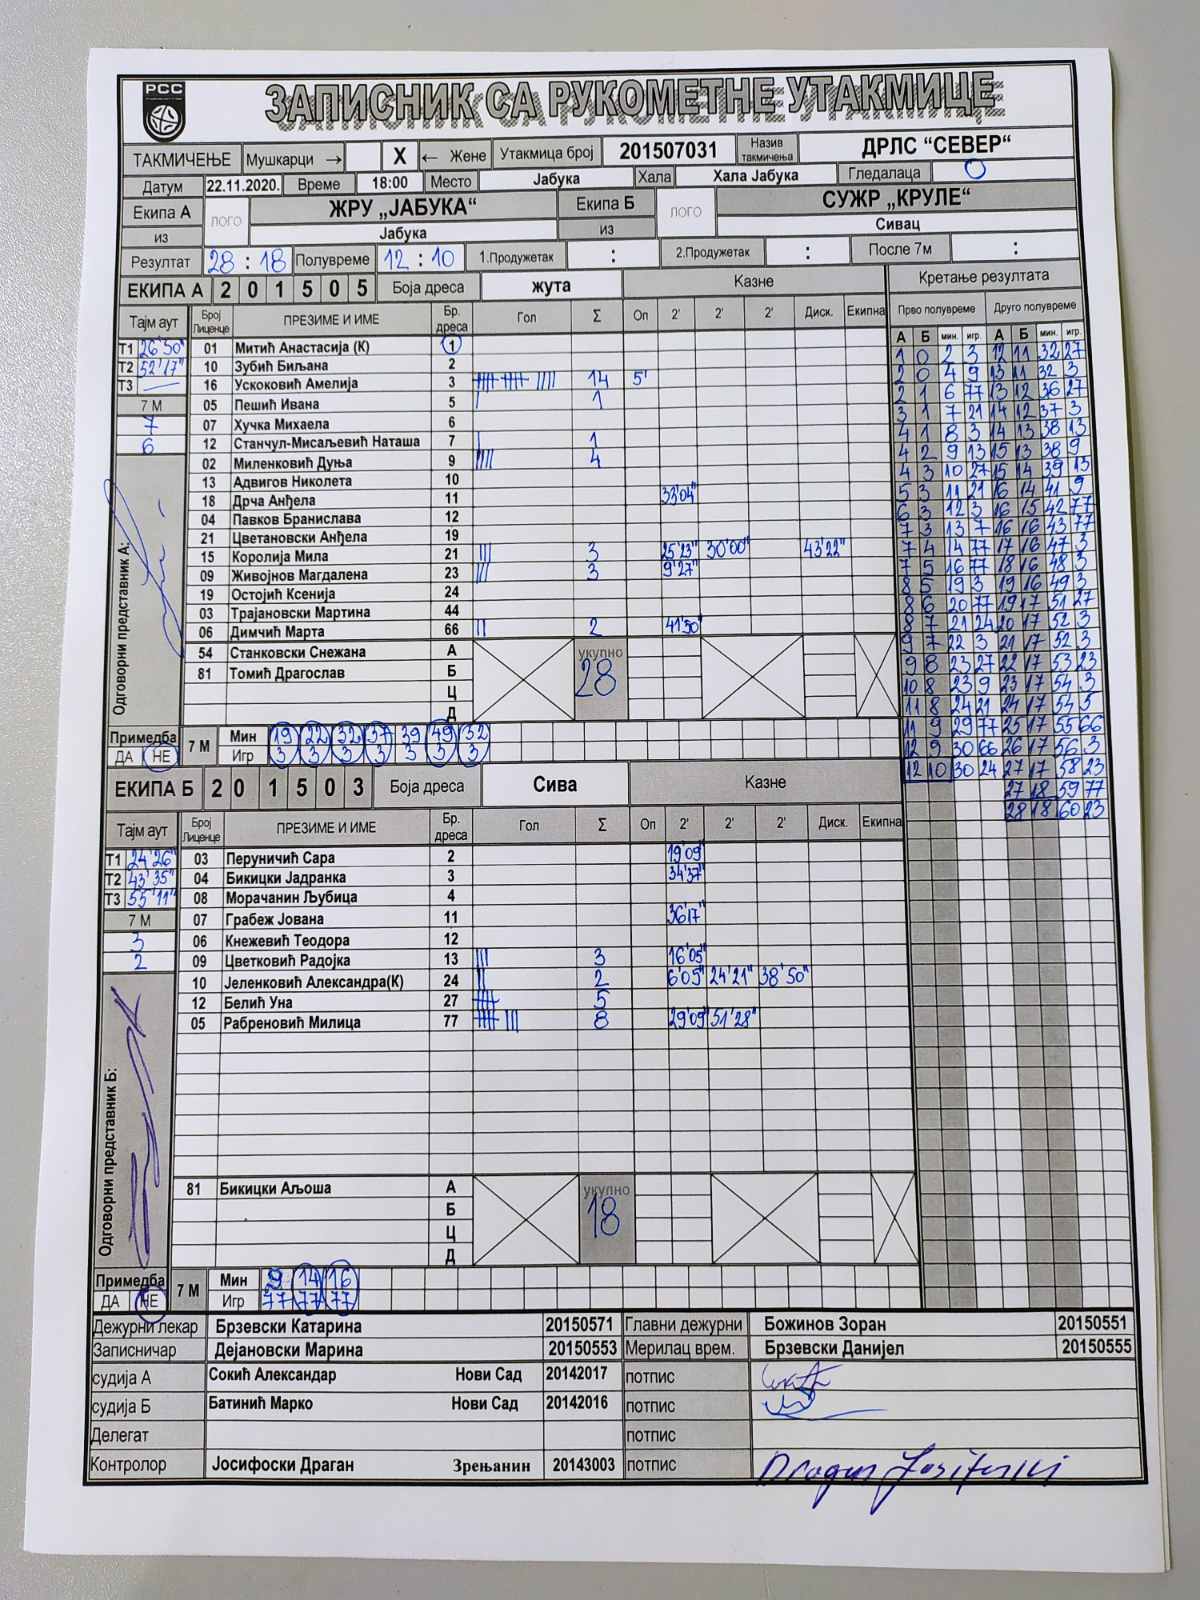 РСС
ЗАПИСНИК СА РУКОМЕТНЕ УТАКМИЦЕ
ТАКМИЧЕЊЕ Мушкарци → X ← Жене Утакмица број 201507031 Назив такмичења ДРЛС “СЕВЕР“
Датум 22.11.2020. Време 18:00 Место Јабука Хала Хала Јабука Гледалаца 0
Екипа А ЛОГО ЖРУ „ЈАБУКА“ Екипа Б ЛОГО СУЖР „КРУЛЕ“
из Јабука из Сивац
Резултат 28 : 18 Полувреме 12 : 10 1.Продужетак : 2.Продужетак : После 7м :
ЕКИПА А 2 0 1 5 0 5 Боја дреса жута Казне
Тајм аут Број Лиценце ПРЕЗИМЕ И ИМЕ Бр. дреса Гол Σ Оп 2' 2' 2' Диск. Екипна
Т1 26'50" 01 Митић Анастасија (К) 1
Т2 52'17" 10 Зубић Биљана 2
Т3 — 16 Ускоковић Амелија 3 14 5'
7 М 05 Пешић Ивана 5 1
7 07 Хучка Михаела 6
6 12 Станчул-Мисаљевић Наташа 7 1
02 Миленковић Дуња 9 4
13 Адвигов Николета 10
18 Дрча Анђела 11 33'04"
04 Павков Бранислава 12
21 Цветановски Анђела 19
15 Королија Мила 21 3 25'23" 30'00" 43'22"
09 Живојнов Магдалена 23 3 9'27"
19 Остојић Ксенија 24
03 Трајановски Мартина 44
06 Димчић Марта 66 2 41'30"
54 Станковски Снежана А укупно
81 Томић Драгослав Б 28
Ц
Д
Одговорни представник А:
Примедба 7 М Мин 19 22 32 37 39 49 52
ДА НЕ Игр 3 3 3 3 3 3 3
ЕКИПА Б 2 0 1 5 0 3 Боја дреса Сива Казне
Тајм аут Број Лиценце ПРЕЗИМЕ И ИМЕ Бр. дреса Гол Σ Оп 2' 2' 2' Диск. Екипна
Т1 24'26" 03 Перуничић Сара 2 19'09"
Т2 43'35" 04 Бикицки Јадранка 3 34'37"
Т3 55'11" 08 Морачанин Љубица 4
7 М 07 Грабеж Јована 11 36'17"
3 06 Кнежевић Теодора 12
2 09 Цветковић Радојка 13 3 16'05"
10 Јеленковић Александра(К) 24 2 6'05" 24'21" 38'50"
12 Белић Уна 27 5
05 Рабреновић Милица 77 8 29'09" 51'28"
81 Бикицки Аљоша А укупно
Б 18
Ц
Д
Одговорни представник Б:
Примедба 7 М Мин 9 14 16
ДА НЕ Игр 77 77 77
Кретање резултата
Прво полувреме Друго полувреме
А Б мин. игр. А Б мин. игр.
1 0 2 3 12 11 32 27
2 0 4 9 13 11 32 3
2 1 6 77 13 12 36 27
3 1 7 21 14 12 37 3
4 1 8 3 14 13 38 13
4 2 9 13 15 13 38 9
4 3 10 27 15 14 39 13
5 3 11 21 16 14 41 9
6 3 12 3 16 15 42 77
7 3 13 7 16 16 43 77
7 4 14 77 17 16 47 3
7 5 16 77 18 16 48 3
8 5 19 3 19 16 49 3
8 6 20 77 19 17 51 27
8 7 21 24 20 17 52 3
9 7 22 3 21 17 52 3
9 8 23 27 22 17 53 23
10 8 23 9 23 17 54 3
11 8 24 21 24 17 54 5
11 9 29 77 25 17 55 66
12 9 30 66 26 17 56 3
12 10 30 24 27 17 58 23
27 18 59 77
28 18 60 23
Дежурни лекар Брзевски Катарина 20150571 Главни дежурни Божинов Зоран 20150551
Записничар Дејановски Марина 20150553 Мерилац врем. Брзевски Данијел 20150555
судија А Сокић Александар Нови Сад 20142017 потпис
судија Б Батинић Марко Нови Сад 20142016 потпис
Делегат потпис
Контролор Јосифоски Драган Зрењанин 20143003 потпис Dragan Josifoski